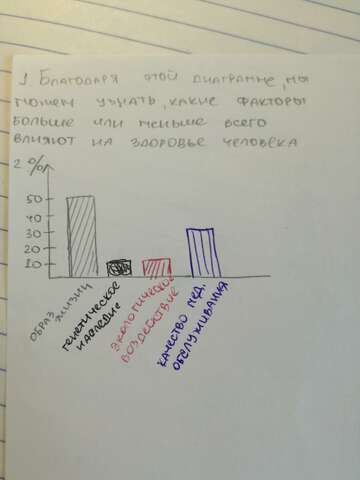 1. Благодаря этой диаграмме, мы
можем узнать, какие факторы
больше или меньше всего
влияют на здоровье человека
2 %
50
40
30
20
10
образ
жизни
генетическое
наследие
экологическое
воздействие
качество мед.
обслуживания